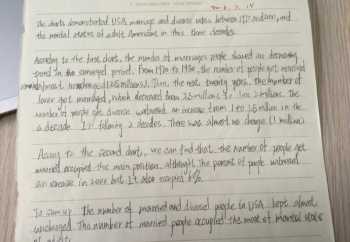 the charts demonstrated USA marriage and divorce rates between 1970 and 2000, and
the marital status of adult Americans in this three decades.
According to the first chart, the number of marriages people showed an decreasing
trend in the surveyed period. From 1970 to 1980, the number of people get married
(2.5 millions). Then, the next twenty years. The number of
lower got married, which decreased from 2.5 millions to 2 millions. The
number of people divorce witnessed an increase from 1 to 1.5 million in the
a decade. In following 2 decades. There was almost no change (1 million)
According to the second chart, we can find that, the number of people get
married occupied the main position, although the percent of people witnessed
an increase in 2000 but it also occupied
To sum up the number of married and divorced people in USA kept almost
unchanged. The number of married people occupied the most of marital status